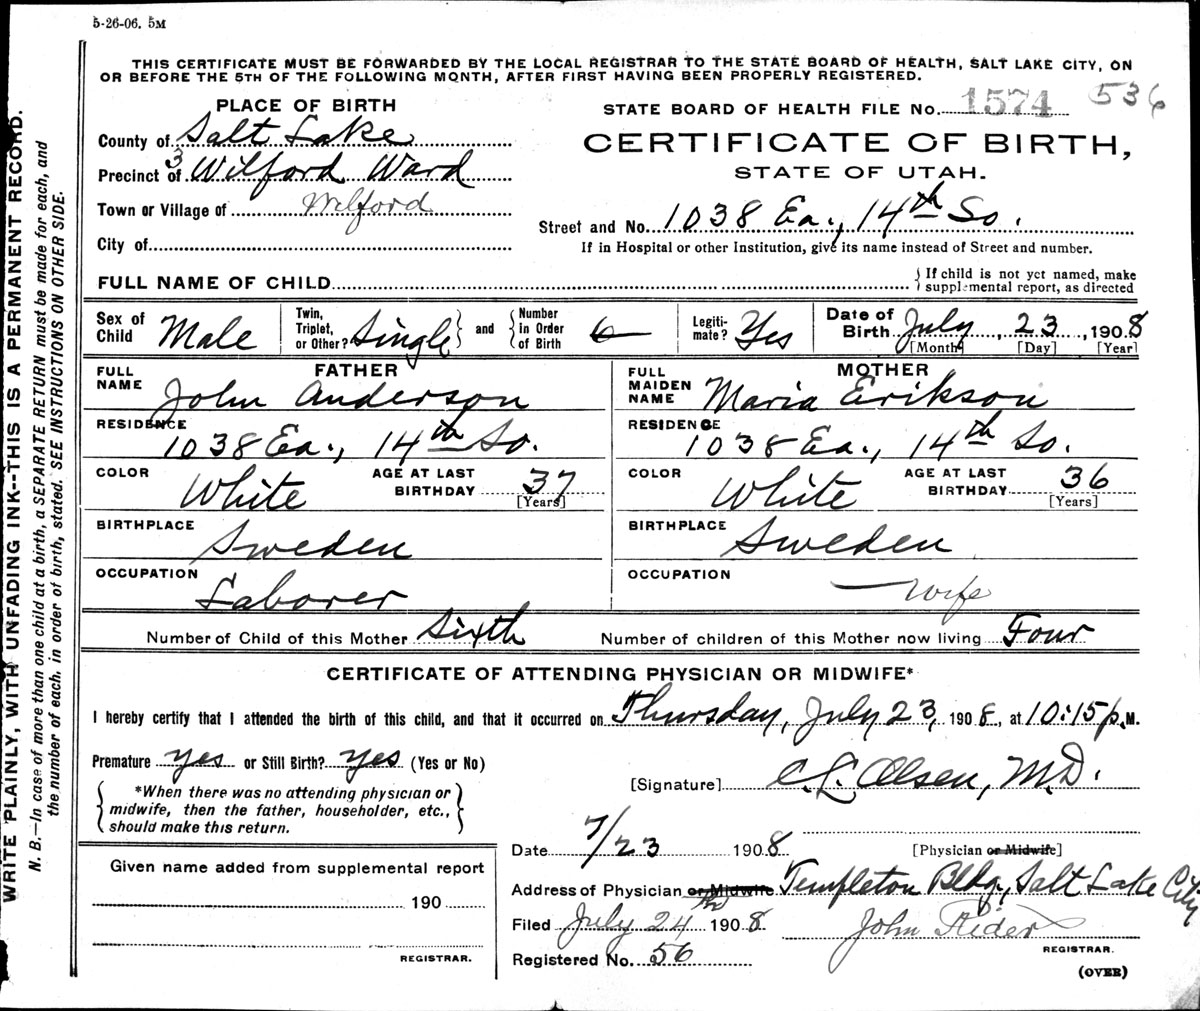 5-26-06. 5M
THIS CERTIFICATE MUST BE FORWARDED BY THE LOCAL REGISTRAR TO THE STATE BOARD OF HEALTH, SALT LAKE CITY, ON
OR BEFORE THE 5TH OF THE FOLLOWING MONTH, AFTER FIRST HAVING BEEN PROPERLY REGISTERED.
WRITE PLAINLY, WITH UNFADING INK--THIS IS A PERMANENT RECORD.
N. B.—In case of more than one child at a birth, a SEPARATE RETURN must be made for each, and
the number of each, in order of birth, stated. SEE INSTRUCTIONS ON OTHER SIDE.
PLACE OF BIRTH
County of Salt Lake
Precinct of 3 Wilford Ward
Town or Village of Wilford
City of
STATE BOARD OF HEALTH FILE No. 1574 536
CERTIFICATE OF BIRTH,
STATE OF UTAH.
Street and No. 1038 Ea., 14th So.
If in Hospital or other Institution, give its name instead of Street and number.
FULL NAME OF CHILD
If child is not yet named, make
supplemental report, as directed
Sex of Child Male
Twin, Triplet, or Other? Single and Number in Order of Birth 6
Legitimate? Yes
Date of Birth July 23, 1908
[Month] [Day] [Year]
FATHER
FULL NAME John Anderson
RESIDENCE 1038 Ea., 14th So.
COLOR White AGE AT LAST BIRTHDAY 37 [Years]
BIRTHPLACE Sweden
OCCUPATION Laborer
MOTHER
FULL MAIDEN NAME Maria Erikson
RESIDENCE 1038 Ea., 14th So.
COLOR White AGE AT LAST BIRTHDAY 36 [Years]
BIRTHPLACE Sweden
OCCUPATION Wife
Number of Child of this Mother Sixth Number of children of this Mother now living Four
CERTIFICATE OF ATTENDING PHYSICIAN OR MIDWIFE*
I hereby certify that I attended the birth of this child, and that it occurred on Thursday, July 23, 1908, at 10:15 p. M.
Premature yes or Still Birth? yes (Yes or No)
*When there was no attending physician or
midwife, then the father, householder, etc.,
should make this return.
[Signature] C. L. Olsen, M.D.
Date 7/23 1908 [Physician or Midwife]
Address of Physician or Midwife Templeton Bldg., Salt Lake City
Filed July 24th 1908 John Rider
REGISTRAR.
Registered No. 56
(OVER)
Given name added from supplemental report
190
REGISTRAR.